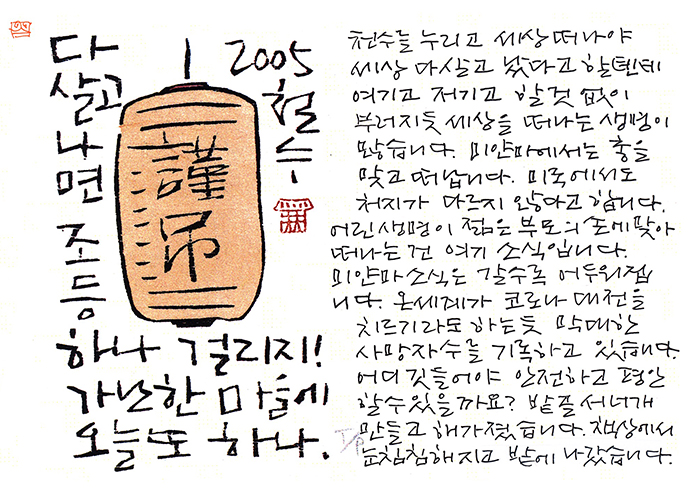 다 살고 나면 조등
하나 걸리지!
가난한 마을에
오늘도 하나.
謹吊
2005 철수
천수를 누리고 세상 떠나야
세상 다 살고 났다고 할텐데
여기고 저기고 할것 없이
부러지듯 세상을 떠나는 생명이
많습니다. 미얀마에서는 총을
맞고 떠납니다. 미국에서도
처지가 다르지 않다고 합니다.
어린 생명이 젊은 부모의 손에 맞아
떠나는 건 여기 소식입니다.
미얀마 소식은 갈수록 어두워집
니다. 온세계가 코로나 대전을
치르기라도 하는듯 막대한
사망자수를 기록하고 있습니다.
어디 깃들어야 안전하고 평안
할 수 있을까요? 서너개
만들고 해가 졌습니다. 책상에서
눈침침해지고 밭에 나갔습니다.